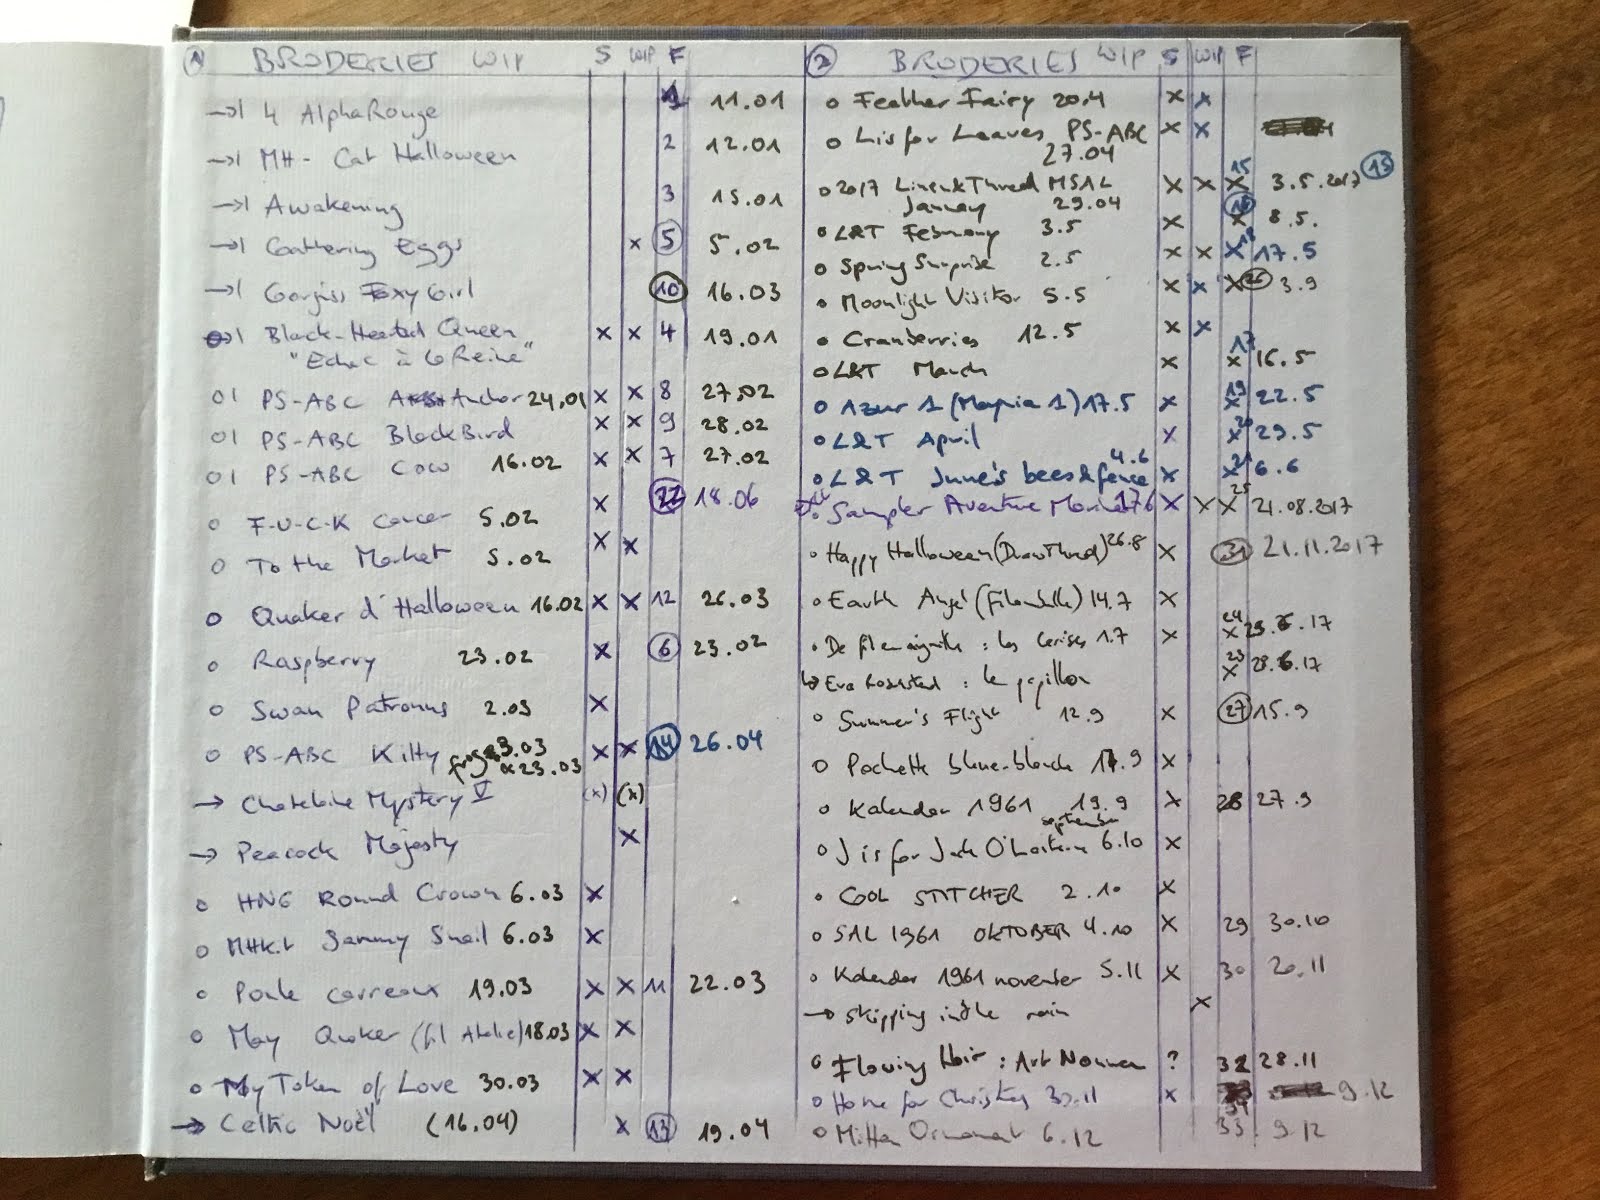 1 BRODERIES WIP S WIP F
→1 4 AlphaRouge 1 11.01
→1 MH- Cat Halloween 2 12.01
→1 Awakening 3 15.01
→1 Gathering Eggs x 5 5.02
→1 Gorjuss Foxy Girl 10 16.03
1 Black-Hearted Queen x x 4 19.01
"Echec à la Reine"
O1 PS-ABC Anchor 24.01 x x 8 27.02
O1 PS-ABC BlackBird x x 9 28.02
O1 PS-ABC Cow 16.02 x x 7 27.02
o F-U-C-K cancer 5.02 x 22 18.06
o To the Market 5.02 x x
o Quaker d'Halloween 16.02 x x 12 26.03
o Raspberry 23.02 x 6 23.02
o Swan Patronus 2.03 x
o PS-ABC Kitty 3.03 x x 14 26.04
23.03
→ Chatelaine Mystery V (x) (x)
→ Peacock Majesty x
o HNG Round Crown 6.03 x
o MHKit Sammy Snail 6.03 x
o Poule carreaux 19.03 x x 11 22.03
o May Quaker (fil Atelier) 18.03 x x
o My Token of Love 30.03 x x
→ Celtic Noël (16.04) x 13 19.04
2 BRODERIES WIP S WIP F
o Feather Fairy 20.4 x x
o L is for Leaves PS-ABC x x
27.04
o 2017 Linen&Thread MSAL x x x 15 3.5.2017 15
January 29.04
o L&T February 3.5 x x 16 8.5.
o Spring Surprise 2.5 x x x 18 17.5
o Moonlight Visitor 5.5 x x x 26 3.9
o Cranberries 12.5 x x
o L&T March x x 17 16.5
o Azur 1 (Mania 1) 17.5 x x 19 22.5
o L&T April x x 20 29.5
o L&T June's bees&fence 4.6 x x 21 6.6
Sampler Aventure 17.6 x x x 25 21.08.2017
o Happy Halloween (DrawnThread) 26.8 x 31 21.11.2017
o Earth Angel (Filambulle) 14.7 x
o De fil en aiguille : les Cerises 1.7 x x 24 29.6.17
↳ Eva Rosenstand : le papillon x 23 28.6.17
o Summer's Flight 12.9 x 27 15.9
o Pochette bleue-blanche 17.9 x
o Kalender 1961 19.9 x 28 27.9
september
o J is for Jack O'Lantern 6.10 x
o COOL STITCHER 2.10 x
o SAL 1961 OKTOBER 4.10 x 29 30.10
o Kalender 1961 november 5.11 x 30 20.11
→ Skipping in the rain x
o Flowing Hair : Art Nouveau ? 32 28.11
o Home for Christmas 30.11 x 34 9.12
o Mitten Ornament 6.12 33 9.12